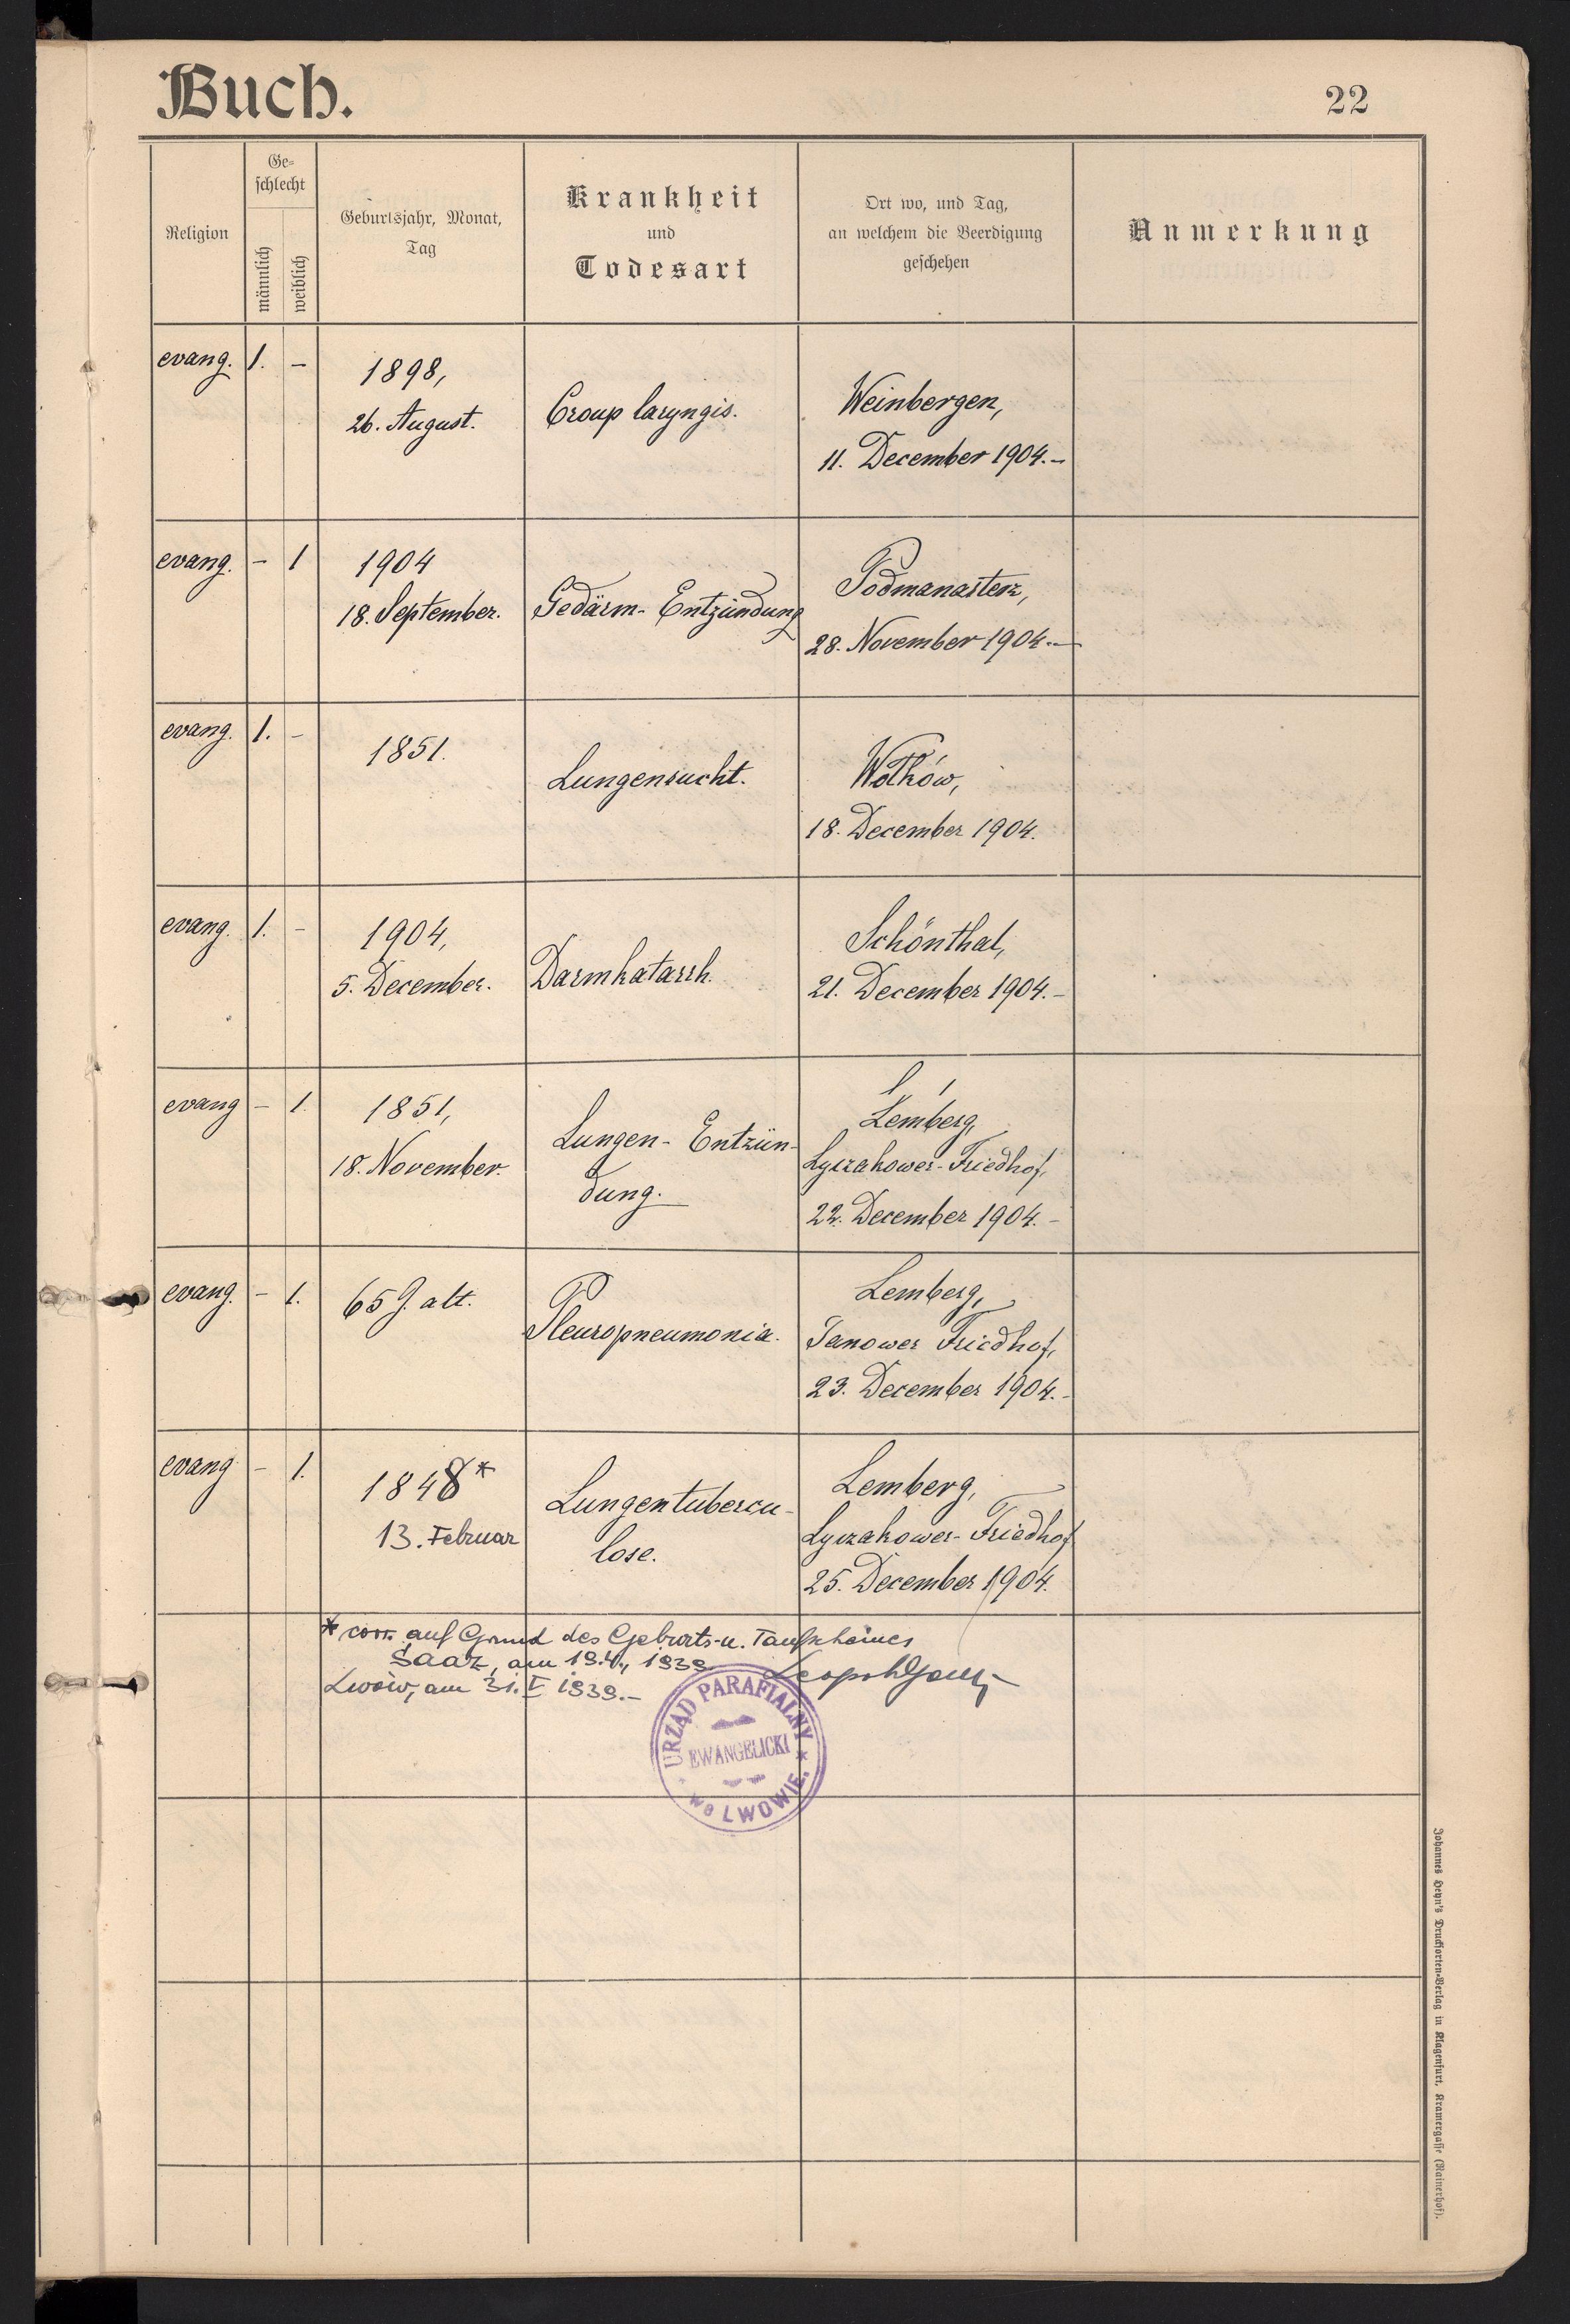 Buch.
22
Religion
Ge-
schlecht
männlich
weiblich
Geburtsjahr, Monat,
Tag
Krankheit
und
Todesart
Ort wo, und Tag,
an welchem die Beerdigung
geschehen
Anmerkung
evang. 1. -
1898,
26. August.
Croup laryngis.
Weinbergen,
11. December 1904.-
evang. - 1
1904
18. September.
Gedärm-Entzündung
Podmanasterz,
28. November 1904.-
evang. 1. -
1851.
Lungensucht.
Wołków,
18. December 1904.
evang. 1. -
1904,
5. December.
Darmkatarrh.
Schönthal,
21. December 1904.-
evang - 1.
1851,
18. November.
Lungen-Entzün-
dung.
Lemberg,
Lyczakower-Friedhof,
22. December 1904.-
evang. - 1.
65 J. alt.
Pleuropneumonia.
Lemberg,
Janower Friedhof,
23. December 1904.-
evang - 1.
1848*
13. Februar
Lungentubercu-
lose.
Lemberg,
Lyczakower-Friedhof
25. December 1904.
* corr. auf Grund des Geburts-u. Taufscheines
Saaz, am 19.4., 1939
Lwów, am 31. V 1939.-
URZĄD PARAFIALNY
EWANGELICKI
we LWOWIE.
Johannes Heyn's Drucksorten-Verlag in Klagenfurt, Kramergasse (Rainerhof).